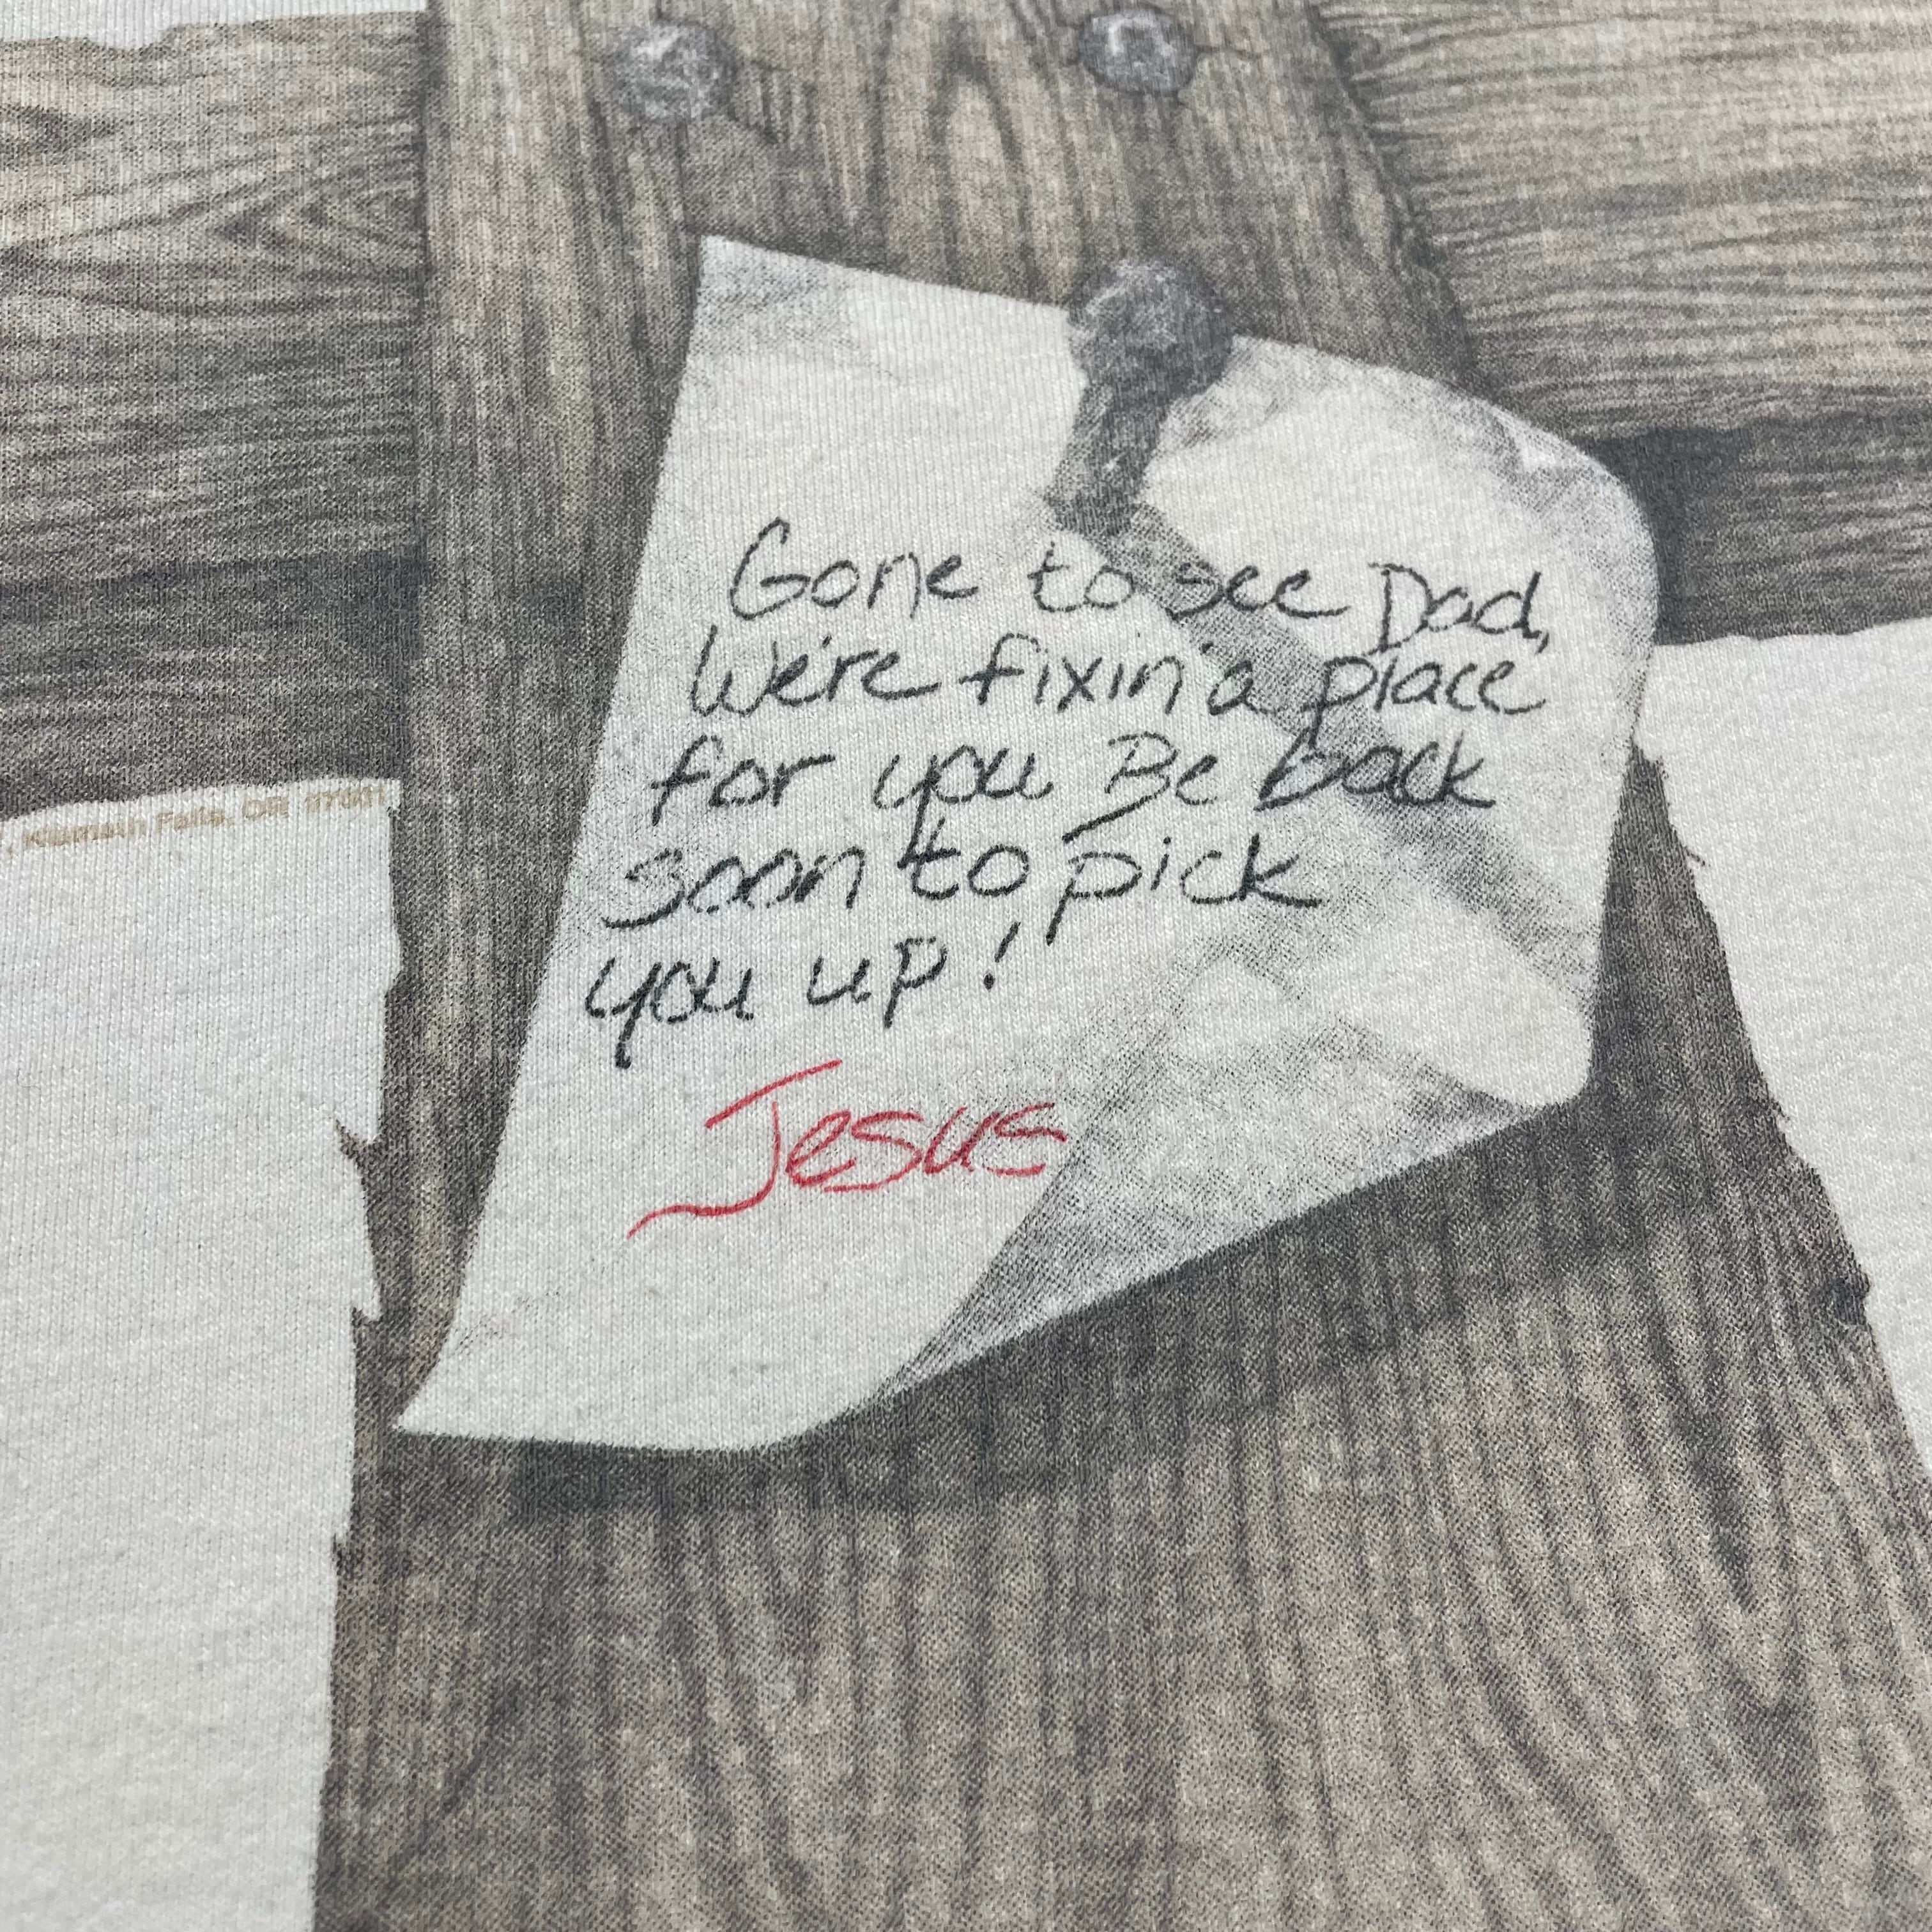 Gone to see Dad,
We're fixin' a place
for you Be back
soon to pick
you up!
Jesus
, Klamath Falls, OR 97601